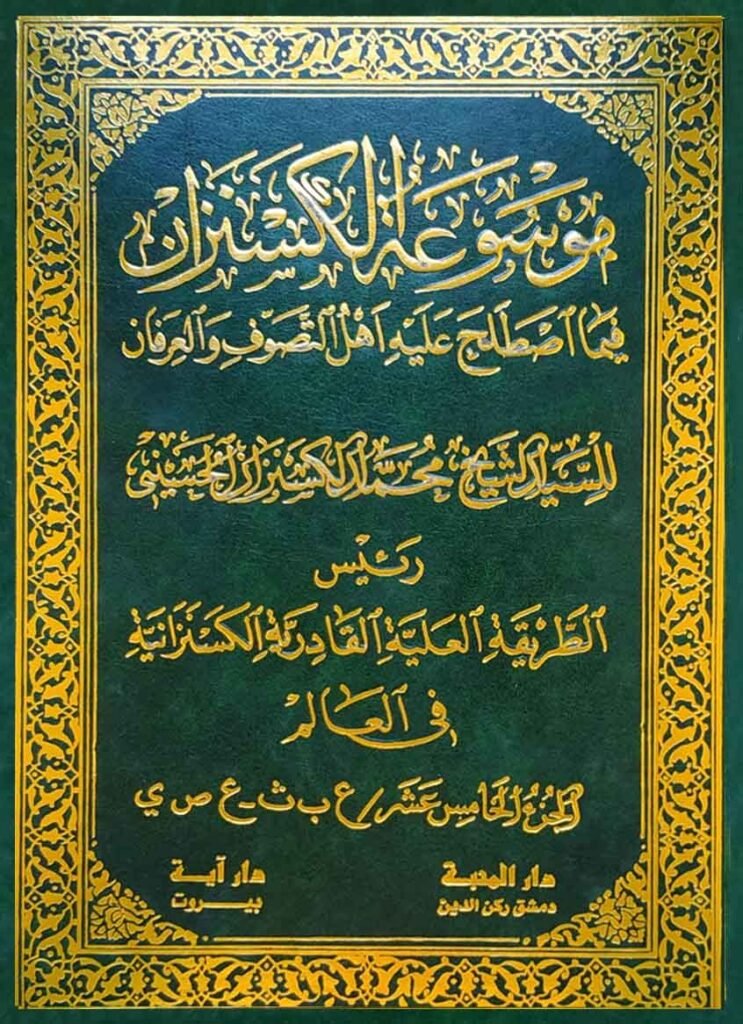 مَوْسُوعَةُ الكَسْنَزَان
فِيمَا ٱصْطَلَحَ عَلَيْهِ أَهْلُ التَّصَوُّفِ وَالعِرْفَان
لِلسَّيِّد الشَّيْخ مُحَمَّد الكَسْنَزَان الحُسَيْنِي
رَئِيسُ
الطَّرِيقَةِ العَلِيَّةِ القَادِرِيَّةِ الكَسْنَزَانِيَّةِ
فِي العَالَمْ
الجُزْءُ الخَامِس عَشَر / ع ب ث - ع ص ي
دار المحبة
دمشق ركن الدين
دار آية
بيـــروت